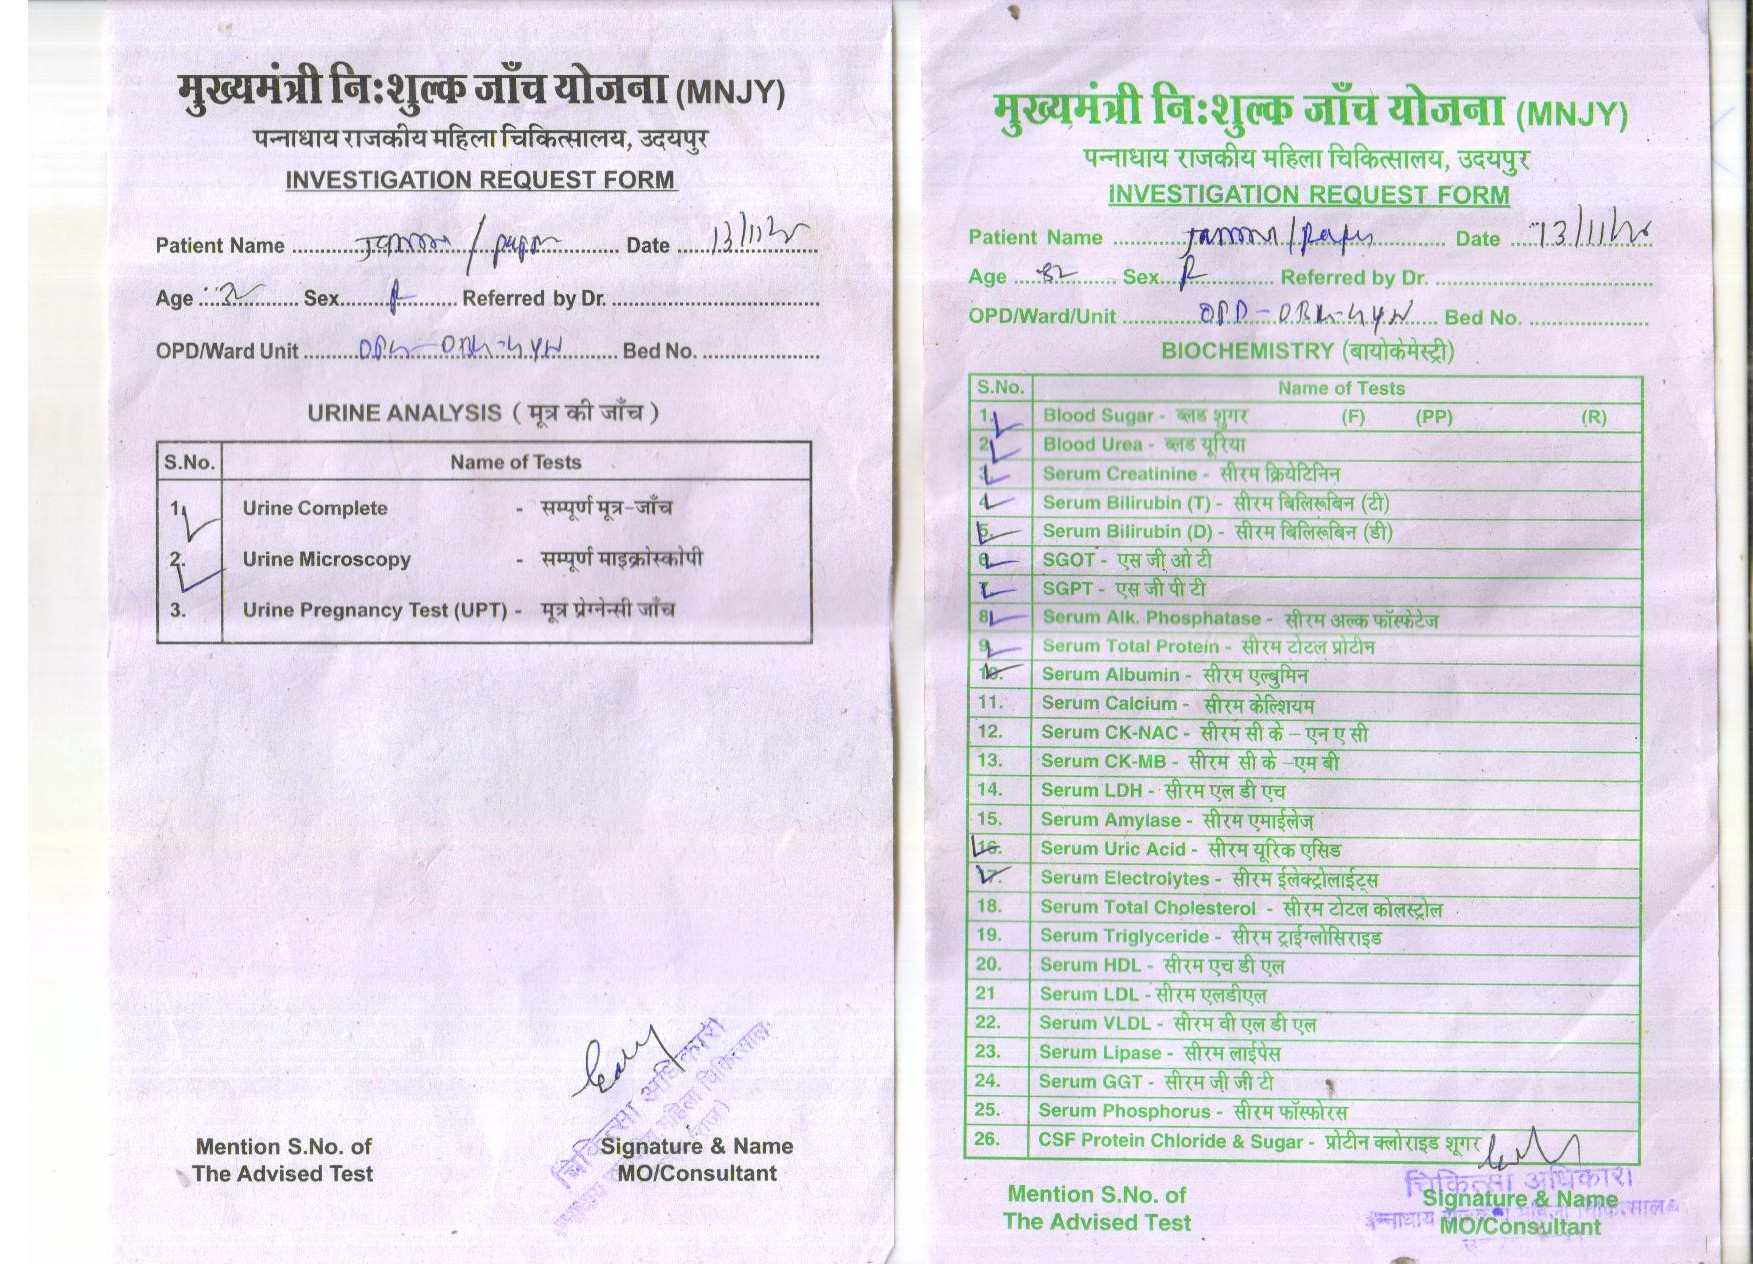 मुख्यमंत्री नि:शुल्क जाँच योजना (MNJY)
पन्नाधाय राजकीय महिला चिकित्सालय, उदयपुर
INVESTIGATION REQUEST FORM
Patient Name Date
Age Sex Referred by Dr.
OPD/Ward Unit Bed No.
URINE ANALYSIS ( मूत्र की जाँच )
S.No. Name of Tests
1. Urine Complete - सम्पूर्ण मूत्र-जाँच
2. Urine Microscopy - सम्पूर्ण माइक्रोस्कोपी
3. Urine Pregnancy Test (UPT) - मूत्र प्रेग्नेन्सी जाँच
चिकित्सा अधिकारी
महिला चिकित्सालय
Mention S.No. of Signature & Name
The Advised Test MO/Consultant
मुख्यमंत्री नि:शुल्क जाँच योजना (MNJY)
पन्नाधाय राजकीय महिला चिकित्सालय, उदयपुर
INVESTIGATION REQUEST FORM
Patient Name Date
Age Sex Referred by Dr.
OPD/Ward/Unit OPD - Bed No.
BIOCHEMISTRY (बायोकेमेस्ट्री)
S.No. Name of Tests
1. Blood Sugar - ब्लड शुगर (F) (PP) (R)
2. Blood Urea - ब्लड यूरिया
3. Serum Creatinine - सीरम क्रियेटिनिन
4. Serum Bilirubin (T) - सीरम बिलिरूबिन (टी)
5. Serum Bilirubin (D) - सीरम बिलिरूबिन (डी)
6. SGOT - एस जी ओ टी
7. SGPT - एस जी पी टी
8. Serum Alk. Phosphatase - सीरम अल्क फॉस्फेटेज
9. Serum Total Protein - सीरम टोटल प्रोटीन
10. Serum Albumin - सीरम एल्बुमिन
11. Serum Calcium - सीरम केल्शियम
12. Serum CK-NAC - सीरम सी के – एन ए सी
13. Serum CK-MB - सीरम सी के –एम बी
14. Serum LDH - सीरम एल डी एच
15. Serum Amylase - सीरम एमाईलेज
16. Serum Uric Acid - सीरम यूरिक एसिड
17. Serum Electrolytes - सीरम ईलेक्ट्रोलाईट्स
18. Serum Total Cholesterol - सीरम टोटल कोलस्ट्रोल
19. Serum Triglyceride - सीरम ट्राईग्लोसिराइड
20. Serum HDL - सीरम एच डी एल
21 Serum LDL - सीरम एलडीएल
22. Serum VLDL - सीरम वी एल डी एल
23. Serum Lipase - सीरम लाईपेस
24. Serum GGT - सीरम जी जी टी
25. Serum Phosphorus - सीरम फॉस्फोरस
26. CSF Protein Chloride & Sugar - प्रोटीन क्लोराइड शूगर
चिकित्सा अधिकारी
Mention S.No. of Signature & Name
The Advised Test MO/Consultant